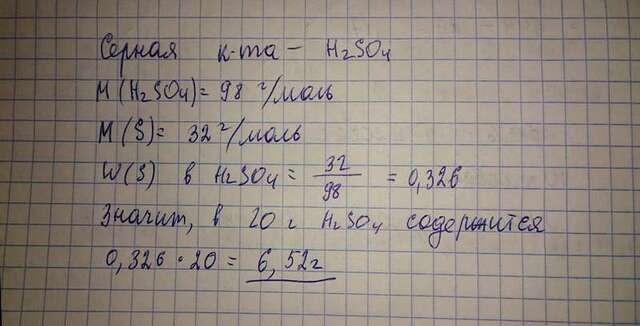 Серная к-та – H₂SO₄
M(H₂SO₄)= 98 г/моль
M(S)= 32 г/моль
W(S) в H₂SO₄ = 32/98 = 0,326
Значит, в 20 г H₂SO₄ содержится
0,326 · 20 = 6,52г